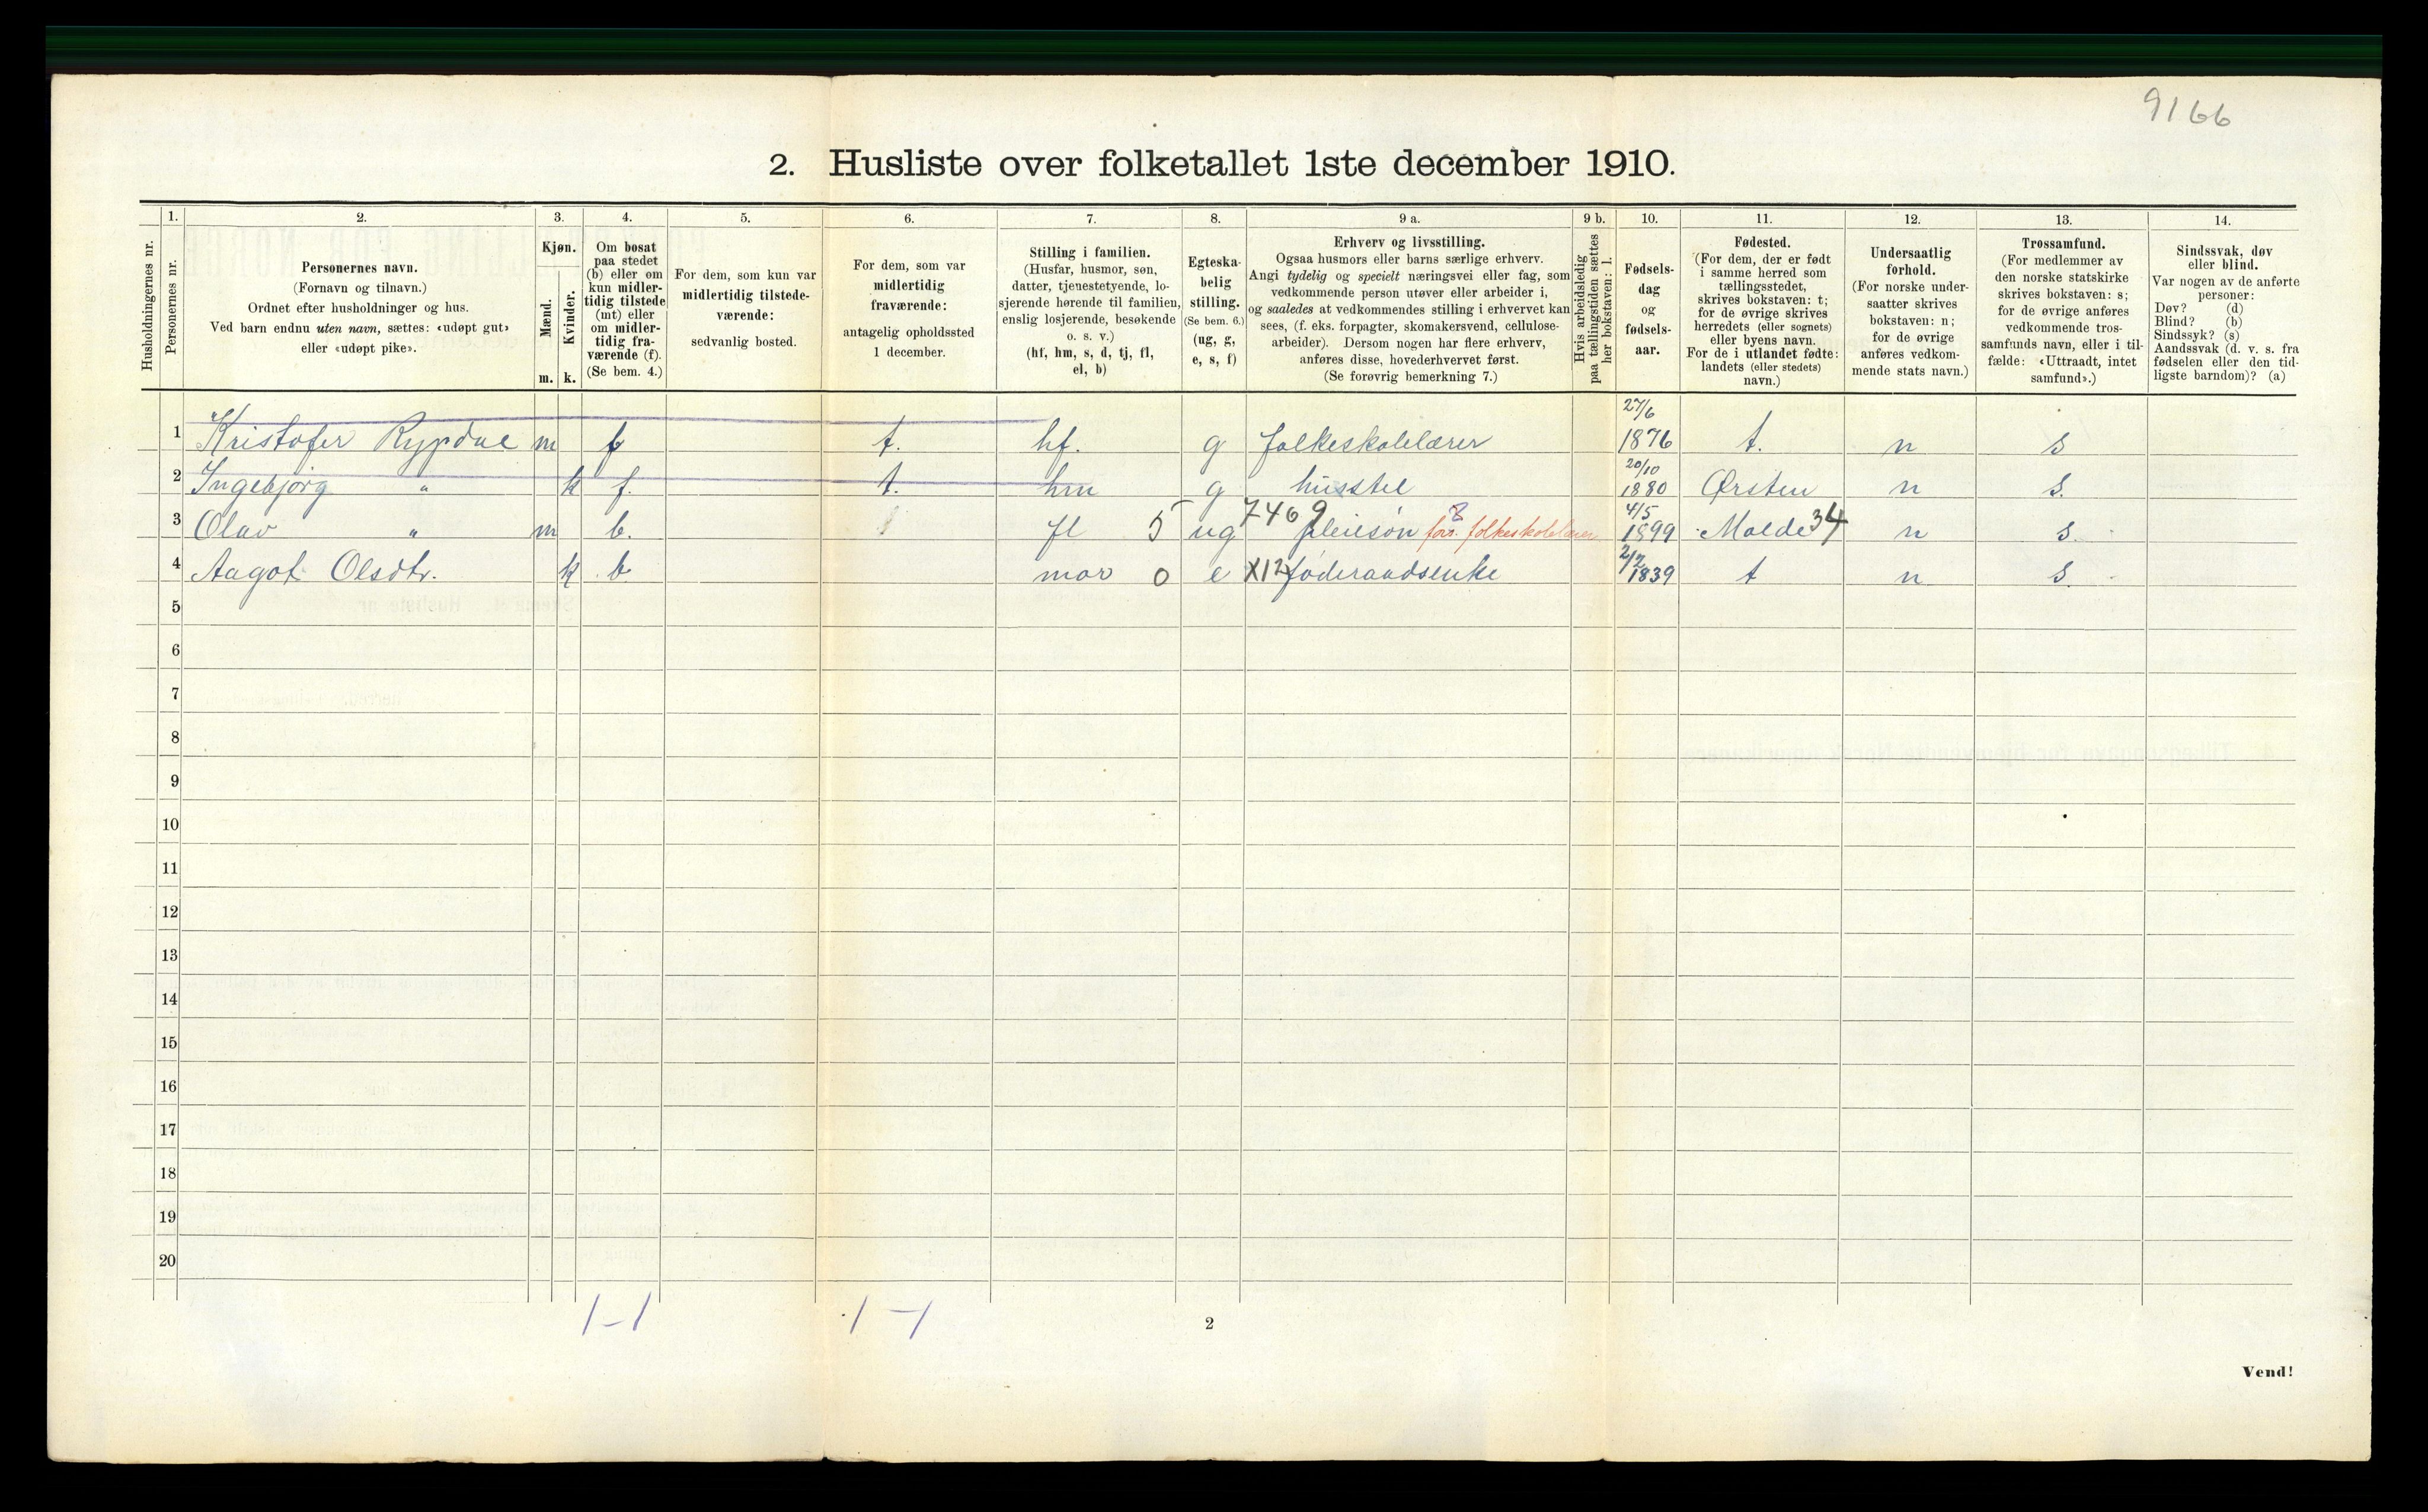 9166
2. Husliste over folketallet 1ste december 1910.
Husholdningernes nr.
1.
Personernes nr.
2.
Personernes navn.
(Fornavn og tilnavn.)
Ordnet efter husholdninger og hus.
Ved barn endnu uten navn, sættes: «udøpt gut»
eller «udøpt pike».
3.
Kjøn.
Mænd.
Kvinder.
m. k.
4.
Om bosat
paa stedet
(b) eller om
kun midler-
tidig tilstede
(mt) eller
om midler-
tidig fra-
værende (f).
(Se bem. 4.)
5.
For dem, som kun var
midlertidig tilstede-
værende:
sedvanlig bosted.
6.
For dem, som var
midlertidig
fraværende:
antagelig opholdssted
1 december.
7.
Stilling i familien.
(Husfar, husmor, søn,
datter, tjenestetyende, lo-
sjerende hørende til familien,
enslig losjerende, besøkende
o. s. v.)
(hf, hm, s, d, tj, fl,
el, b)
8.
Egteska-
belig
stilling.
(Se bem. 6.)
(ug, g,
e, s, f)
9 a.
Erhverv og livsstilling.
Ogsaa husmors eller barns særlige erhverv.
Angi tydelig og specielt næringsvei eller fag, som
vedkommende person utøver eller arbeider i,
og saaledes at vedkommendes stilling i erhvervet kan
sees, (f. eks. forpagter, skomakersvend, cellulose-
arbeider). Dersom nogen har flere erhverv,
anføres disse, hovederhvervet først.
(Se forøvrig bemerkning 7.)
9 b.
Hvis arbeidsledig
paa tællingstiden sættes
her bokstaven: l.
10.
Fødsels-
dag
og
fødsels-
aar.
11.
Fødested.
(For dem, der er født
i samme herred som
tællingsstedet,
skrives bokstaven: t;
for de øvrige skrives
herredets (eller sognets)
eller byens navn.
For de i utlandet fødte:
landets (eller stedets)
navn.)
12.
Undersaatlig
forhold.
(For norske under-
saatter skrives
bokstaven: n;
for de øvrige
anføres vedkom-
mende stats navn.)
13.
Trossamfund.
(For medlemmer av
den norske statskirke
skrives bokstaven: s;
for de øvrige anføres
vedkommende tros-
samfunds navn, eller i til-
fælde: «Uttraadt, intet
samfund».)
14.
Sindssvak, døv
eller blind.
Var nogen av de anførte
personer:
Døv? (d)
Blind? (b)
Sindssyk? (s)
Aandssvak (d. v. s. fra
fødselen eller den tid-
ligste barndom)? (a)
1 Kristofer Rypdal m f t. hf. g folkeskolelærer 27/6 1876 t. n s
2 Ingebjørg " k f. t. hm g husstel 20/10 1880 Ørsten n s.
3 Olav " m b. fl 5 ug 7469 pleiesøn 8 fors. folkeskolelærer 4/5 1899 Molde 34 n s.
4 Aagot Olsdtr. k b mor 0 e X12 føderaadsenke 2/2 1839 t n s.
5
6
7
8
9
10
11
12
13
14
15
16
17
18
19
20
1-1 1-1
2
Vend!